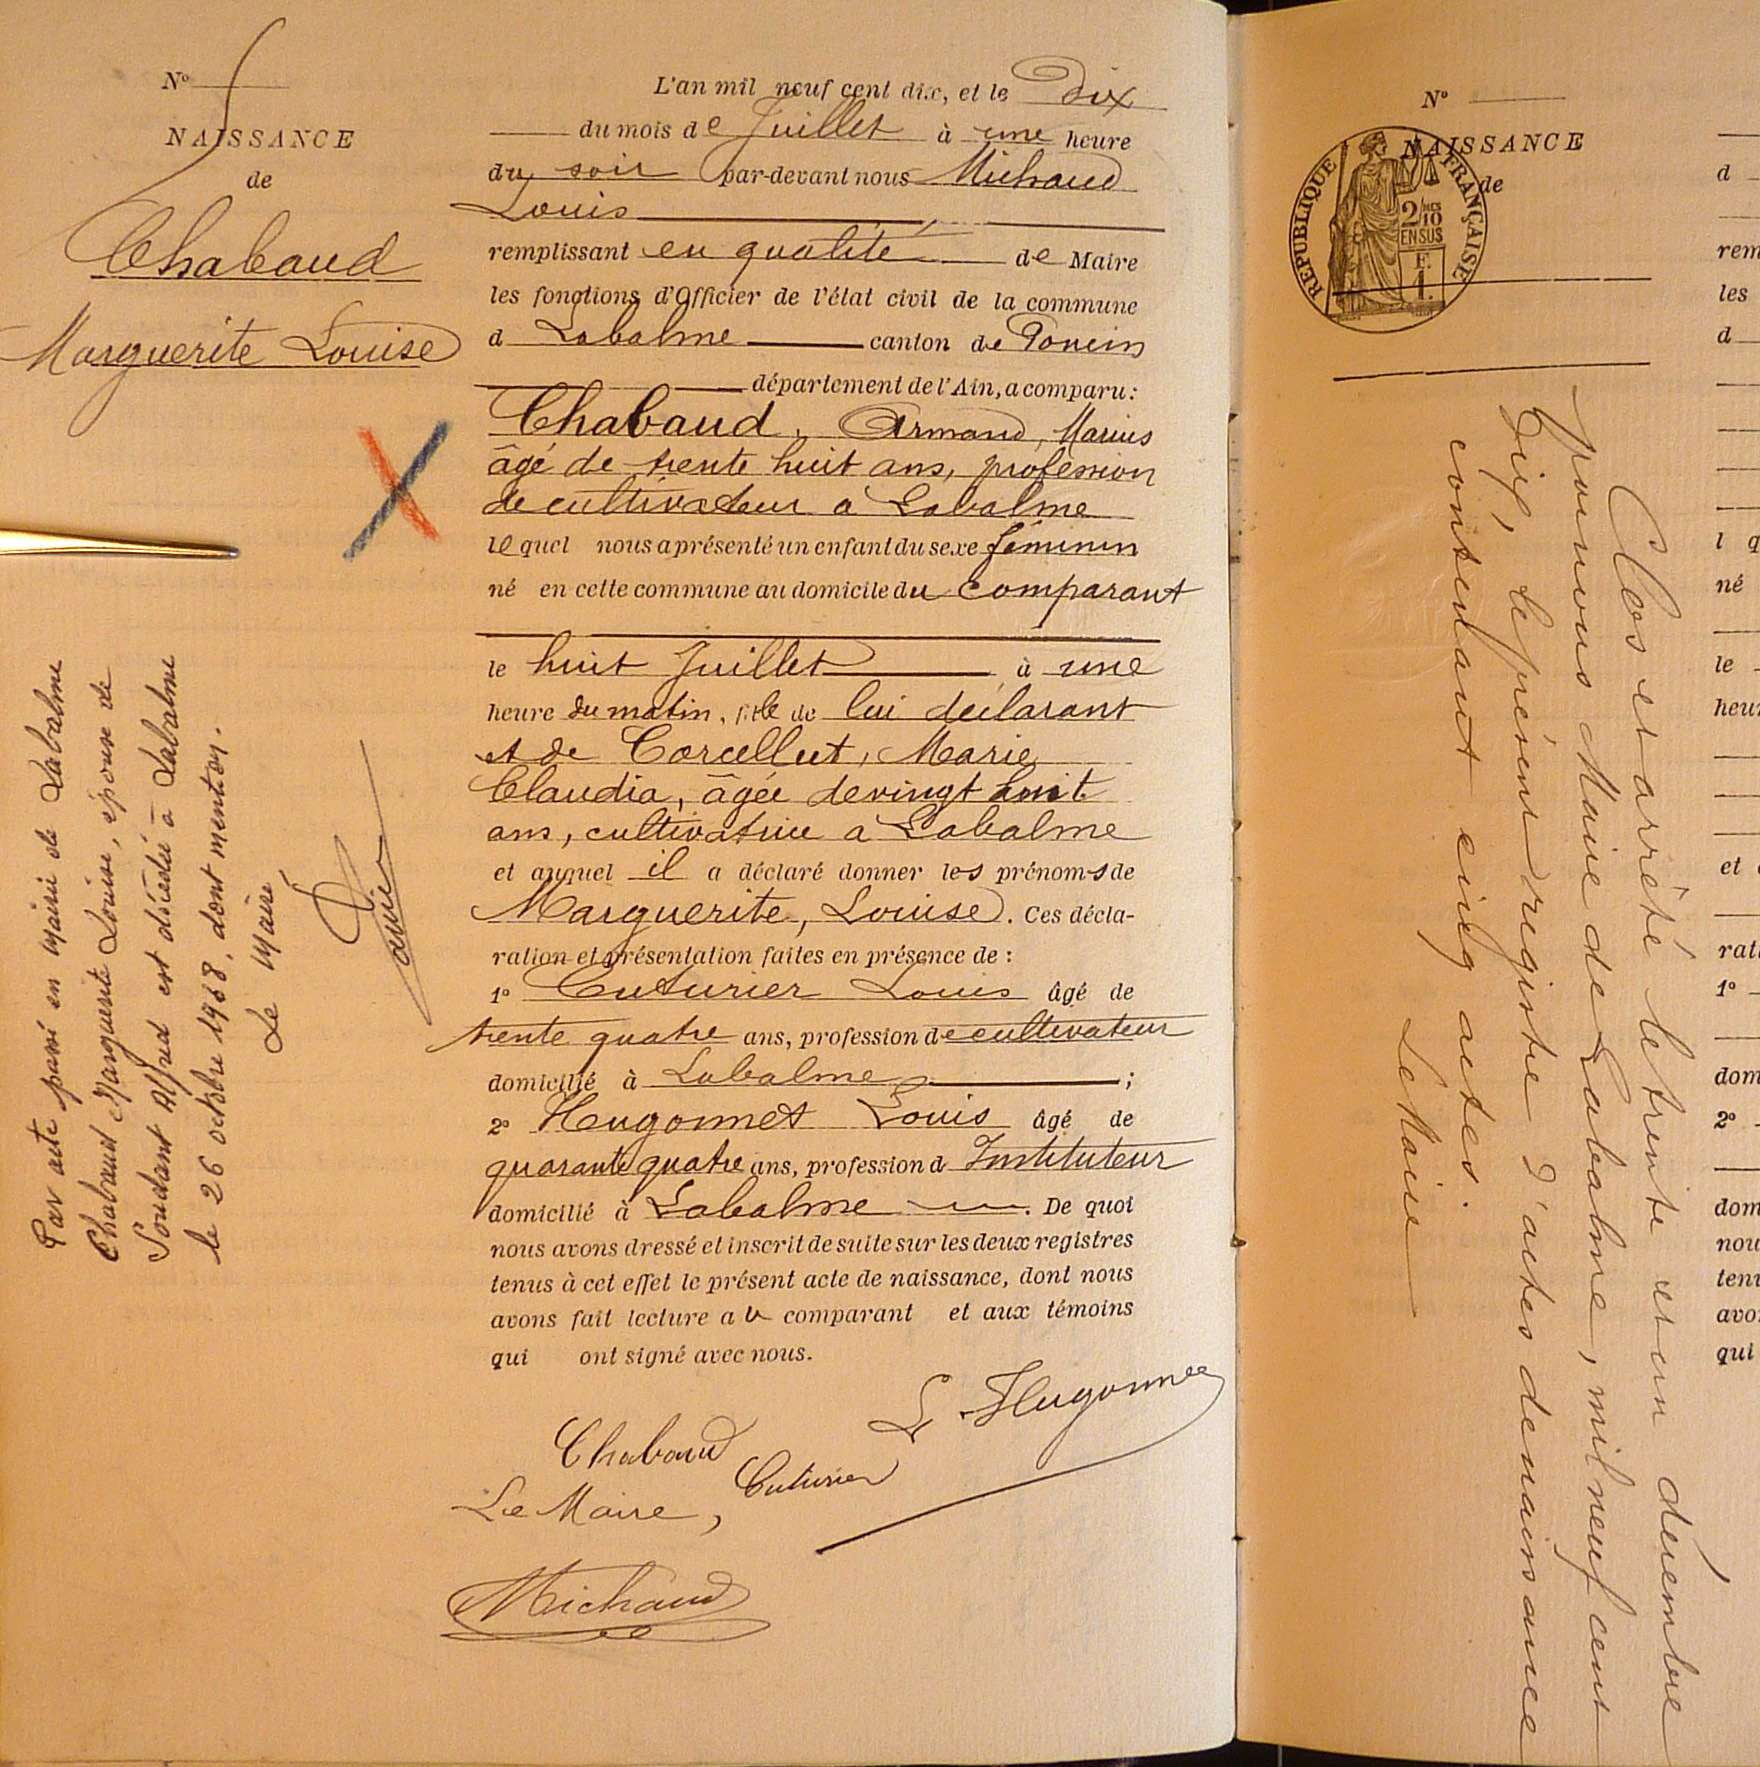 N° 5
NAISSANCE
de
Chabaud
Marguerite Louise
L'an mil neuf cent dix, et le Dix
du mois de Juillet à une heure
du soir par-devant nous Michaud
Louis
remplissant en qualité de Maire
les fonctions d'Officier de l'état civil de la commune
d Labalme canton de Poncin
département de l'Ain, a comparu:
Chabaud, Armand, Marius
âgé de trente huit ans, profession
de cultivateur a Labalme
lequel nous a présenté un enfant du sexe féminin
né en cette commune au domicile du comparant
le huit Juillet à une
heure du matin, fille de lui déclarant
et de Corcellut, Marie
Claudia, âgée de vingt huit
ans, cultivatrice a Labalme
et auquel il a déclaré donner les prénoms de
Marguerite, Louise. Ces décla-
ration et présentation faites en présence de :
1° Cuturier Louis âgé de
trente quatre ans, profession de cultivateur
domicilié à Labalme ;
2° Hugonnet Louis âgé de
quarante quatre ans, profession d Instituteur
domicilié à Labalme. De quoi
nous avons dressé et inscrit de suite sur les deux registres
tenus à cet effet le présent acte de naissance, dont nous
avons fait lecture au comparant et aux témoins
qui ont signé avec nous.
L. Hugonnet
Chabaud
Cuturier
Le Maire,
Michaud
Par acte passé en mairie de Labalme
Chabaud Marguerite Louise, épouse de
Soudant Alfred est décédée à Labalme
le 26 octobre 1968, dont mention.
Le Maire
N°
NAISSANCE
de
REPUBLIQUE FRANÇAISE
2/10 MES
EN SUS
F.
1.
Clos et arrêté le trente et un décembre
par nous Maire de Labalme, mil neuf cent
Dix, le présent registre d'actes de naissance
contenant cinq actes.
Le Maire
d
rem
les
d
l q
né
le
heur
et
rati
1°
dom
2°
dom
nou
tenu
avon
qui